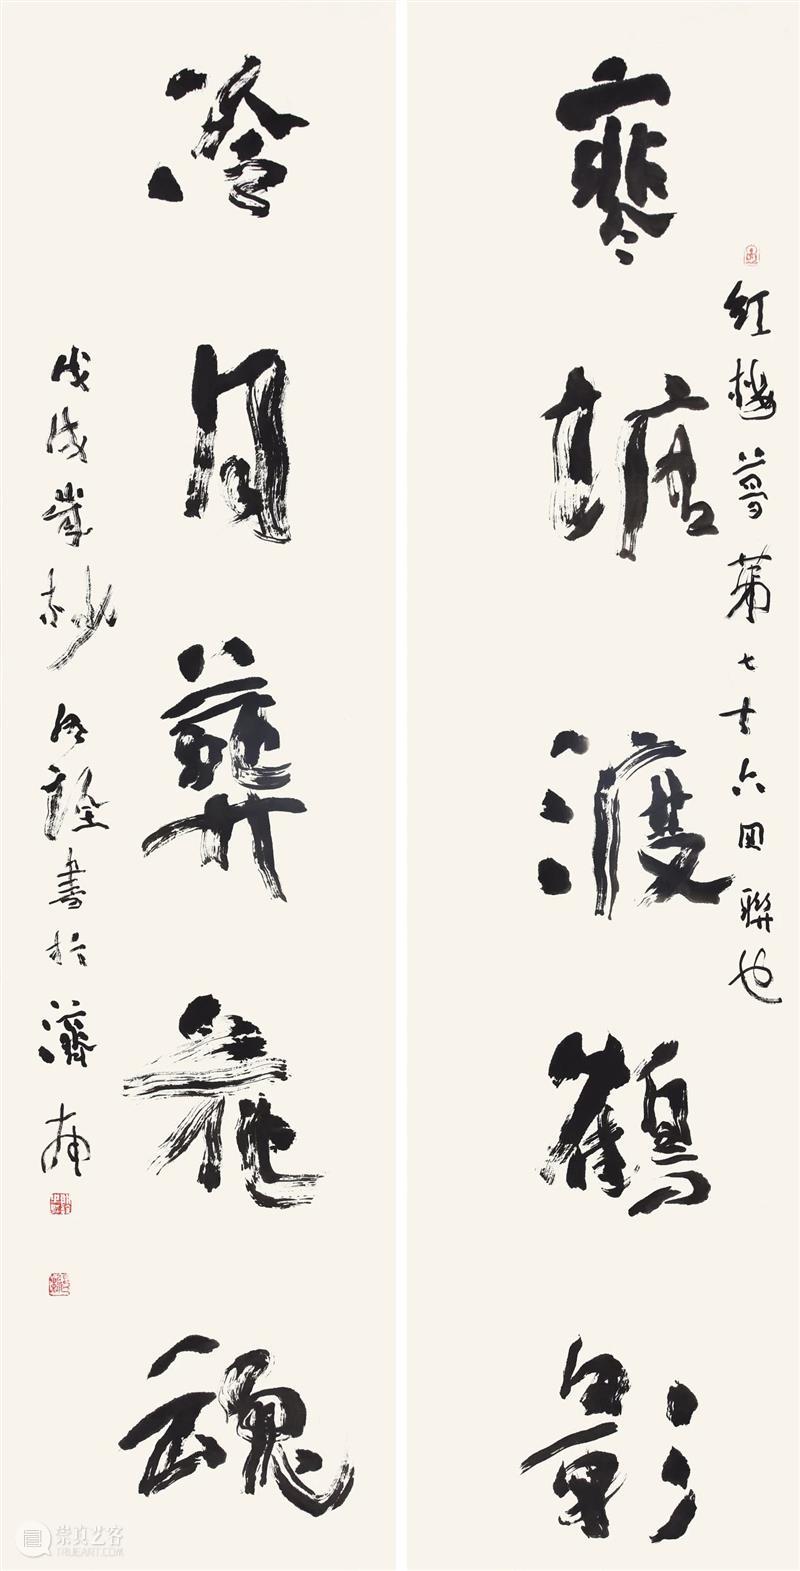 寒塘渡鶴影
紅樓夢第七十六回聯也
冷月葬花魂
戊戌歲杪明詮書於濟南
崇真艺客
TRUEART.COM